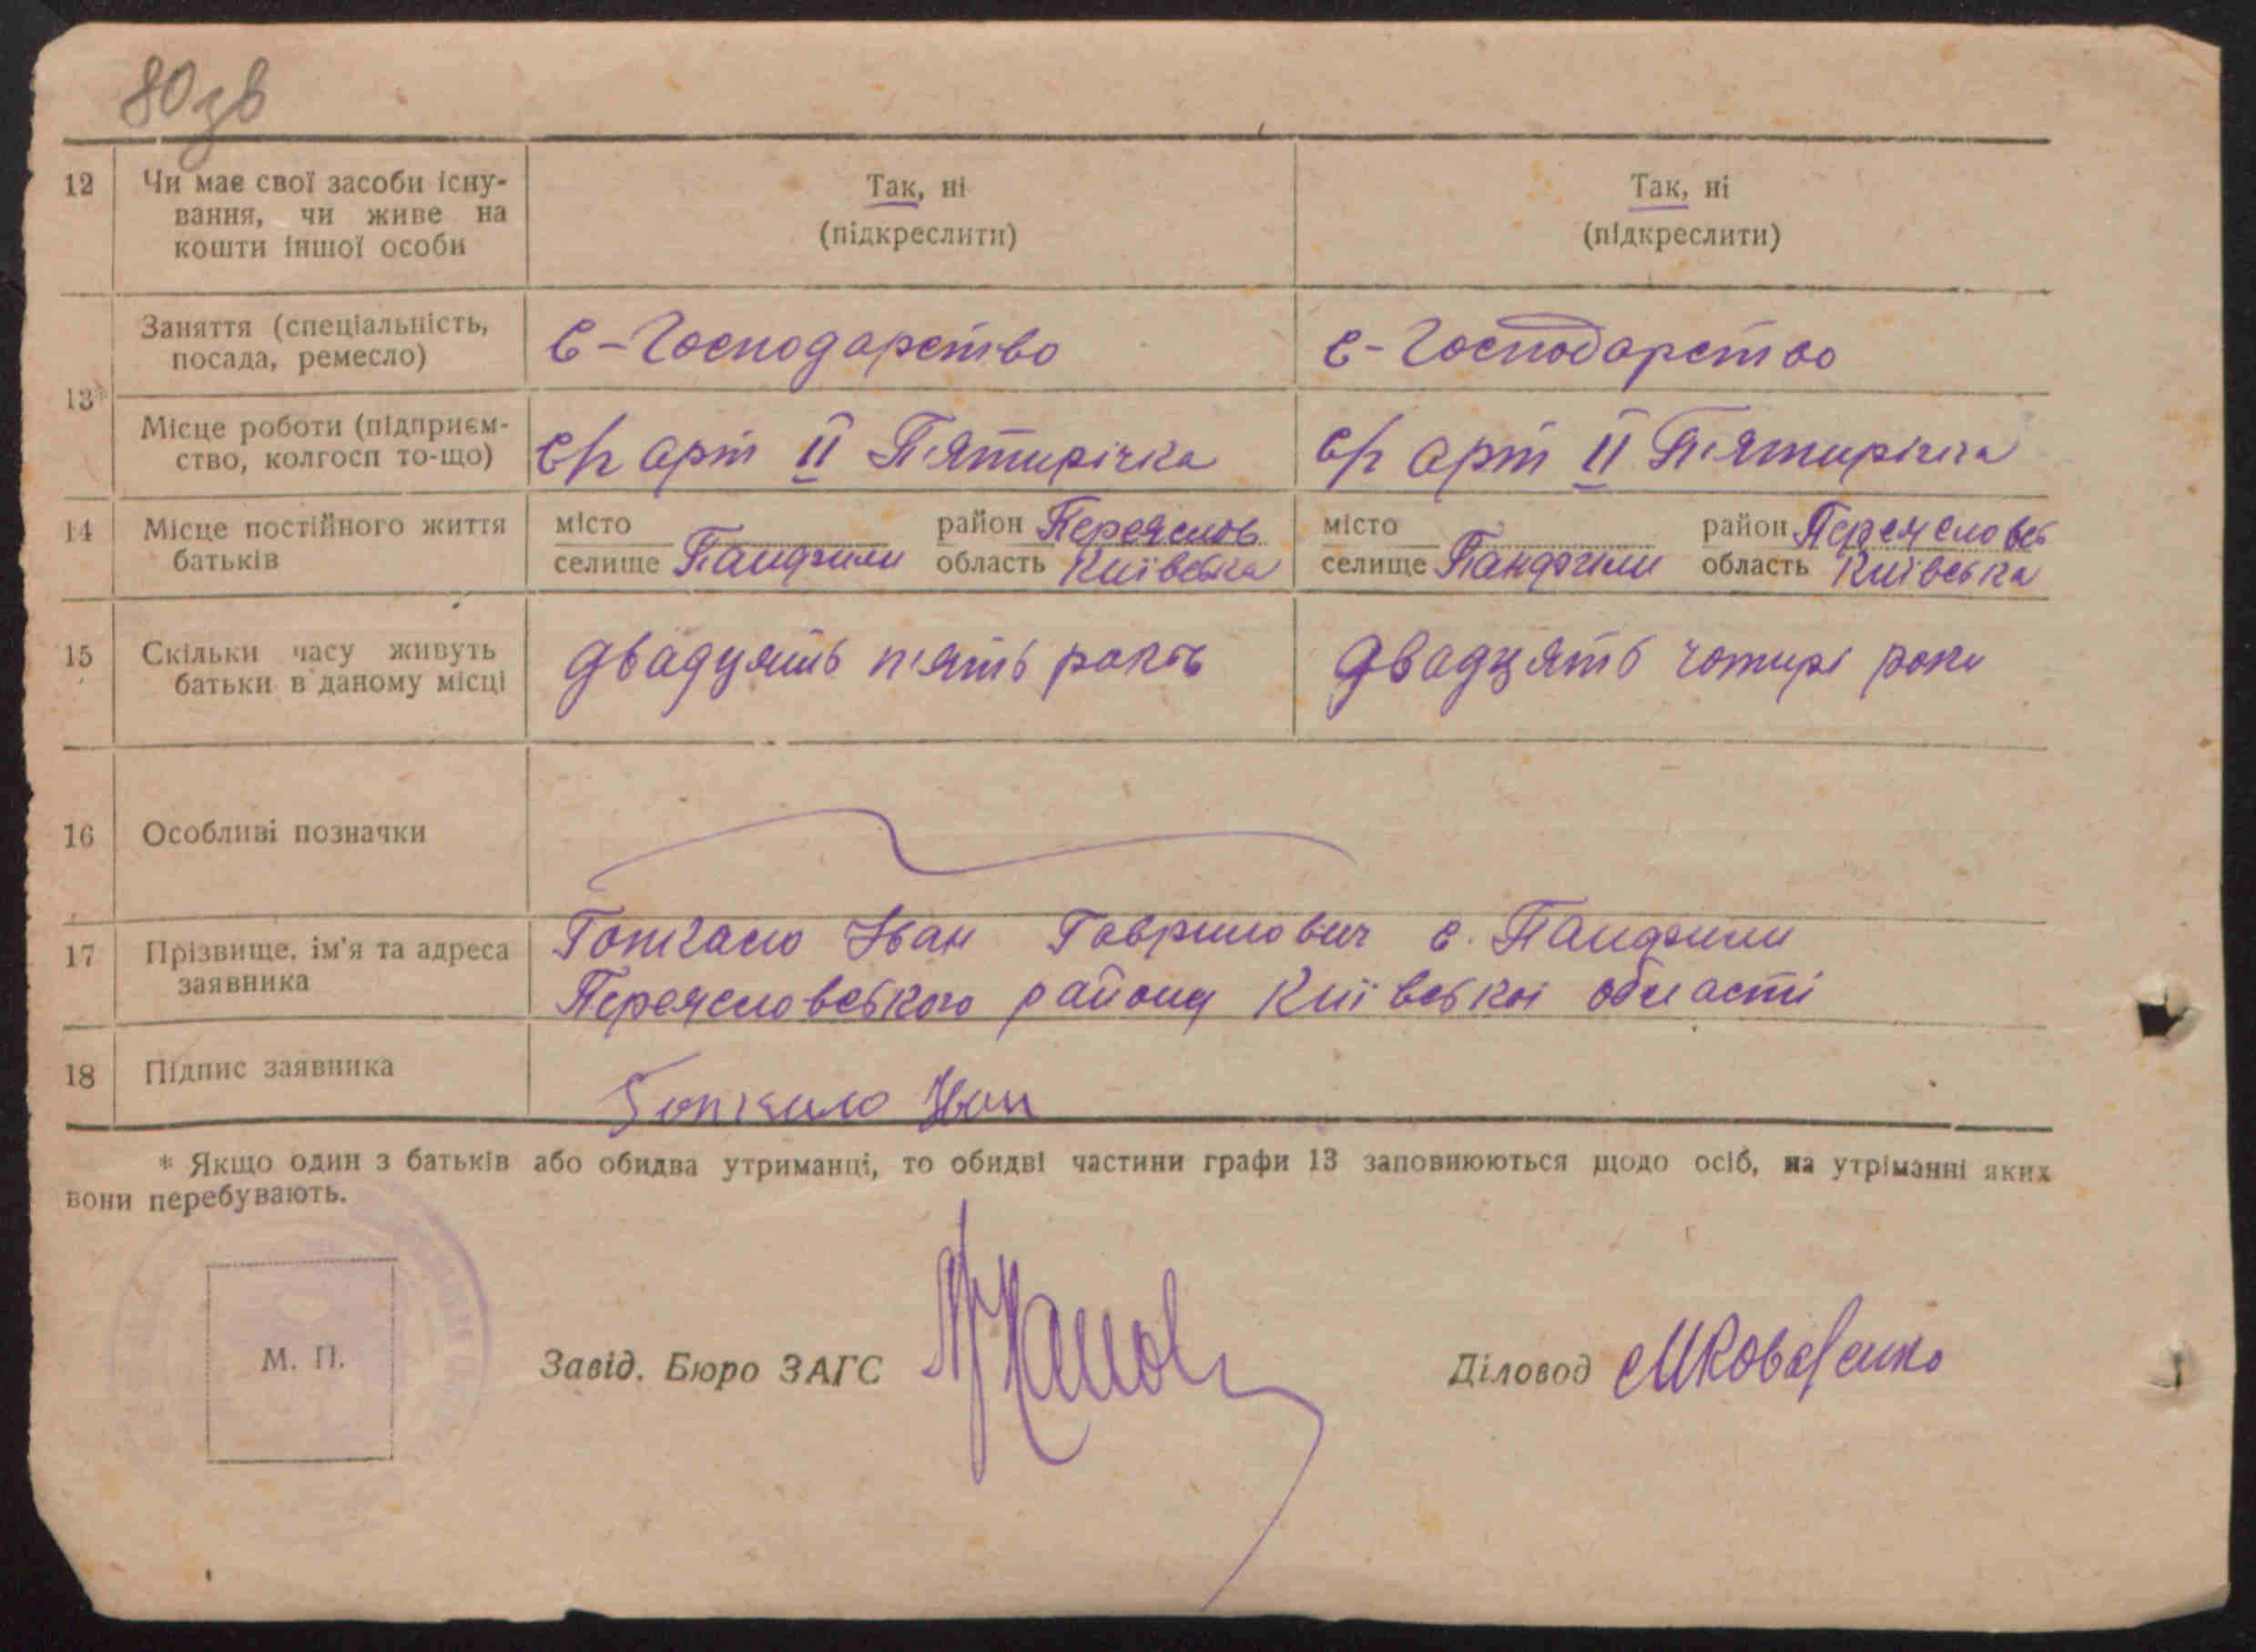 80зв
12 Чи має свої засоби існу- Так, ні Так, ні
вання, чи живе на (підкреслити) (підкреслити)
кошти іншої особи
13* Заняття (спеціальність, с-Господарство с-Господарство
посада, ремесло)
Місце роботи (підприєм- с/г арт II П'ятирічка с/г арт II П'ятирічка
ство, колгосп то-що)
14 Місце постійного життя місто район Переяслов місто район Переяславсь
батьків селище Панфили область Київська селище Панфили область Київська
15 Скільки часу живуть двадцять п'ять років двадцять чотирі роки
батьки в даному місці
16 Особливі позначки
17 Прізвище, ім'я та адреса Іван Гаврилович с. Панфили
заявника Переясловського району Київської області
18 Підпис заявника Іван
* Якщо один з батьків або обидва утриманці, то обидві частини графи 13 заповнюються щодо осіб, на утріманні яких
вони перебувають.
М. П.
Завід. Бюро ЗАГС Діловод МКоваленко